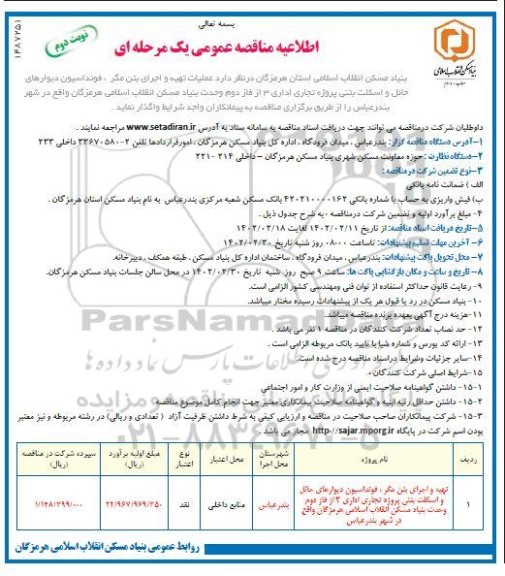 بسمه تعالی
۱۴۸۷۲۵۱
نوبت دوم
اطلاعیه مناقصه عمومی یک مرحله ای
بنیاد مسکن انقلاب اسلامی
بنیاد مسکن انقلاب اسلامی استان هرمزگان درنظر دارد عملیات تهیه و اجرای بتن مگر ، فونداسیون دیوارهای
حائل و اسکلت بتنی پروژه تجاری اداری ۳ از فاز دوم وحدت بنیاد مسکن انقلاب اسلامی هرمزگان واقع در شهر
بندرعباس را از طریق برگزاری مناقصه به پیمانکاران واجد شرایط واگذار نماید .
داوطلبان شرکت درمناقصه می توانند جهت دریافت اسناد مناقصه به سامانه ستاد به آدرس www.setadiran.ir مراجعه نمایند .
۱-آدرس دستگاه مناقصه گزار: بندرعباس ، میدان فرودگاه ، اداره کل بنیاد مسکن هرمزگان ، امورقراردادها تلفن ۲-۳۳۶۷۰۵۸۰ داخلی ۲۳۳
۲-دستگاه نظارت: حوزه معاونت مسکن شهری بنیاد مسکن هرمزگان – داخلی ۲۱۴ -۲۲۱
۳-نوع تضمین شرکت در مناقصه:
الف ) ضمانت نامه بانکی
ب) فیش واریزی به حساب با شماره بانکی ۴۲۰۲۱۰۰۰۰۱۶۲ بانک مسکن شعبه مرکزی بندرعباس به نام بنیاد مسکن استان هرمزگان .
۴- مبلغ برآورد اولیه و تضمین شرکت درمناقصه ، به شرح جدول ذیل .
۵-تاریخ دریافت اسناد مناقصه: از تاریخ ۱۴۰۲/۰۲/۱۱ لغایت ۱۴۰۲/۰۲/۱۸
۶- آخرین مهلت تسلیم پیشنهادات: تاساعت ۰۸:۰۰ روز شنبه تاریخ ۱۴۰۲/۰۲/۳۰
۷- محل تحویل پاکت پیشنهادات: بندرعباس ، میدان فرودگاه ، ساختمان اداره کل بنیاد مسکن ، طبقه همکف ، دبیرخانه.
۸- تاریخ و ساعت و مکان بازگشایی پاکت ها: ساعت ۹ صبح روز شنبه تاریخ ۱۴۰۲/۰۲/۳۰ در محل سالن جلسات بنیاد مسکن هرمزگان.
۹- رعایت قانون حداکثر استفاده از توان فنی ومهندسی کشور الزامی است.
۱۰- بنیاد مسکن در رد یا قبول هر یک از پیشنهادات رسیده مختار میباشد.
۱۱-هزینه درج آگهی بعهده برنده مناقصه میباشد
۱۲- حد نصاب تعداد شرکت کنندگان در مناقصه ۱ نفر می باشد .
۱۳- ارائه کد بورس و شماره شبا با تایید بانک مربوطه الزامی است .
۱۴-سایر جزئیات وشرایط دراسناد مناقصه درج شده است.
۱۵-شرایط اصلی شرکت کنندگان:
۱-۱۵- داشتن گواهینامه صلاحیت ایمنی از وزارت کار و امور اجتماعی
۲-۱۵- داشتن حداقل رتبه ابنیه و گواهینامه صلاحیت پیمانکاری معتبر جهت انجام کامل موضوع مناقصه
۳-۱۵- شرکت پیمانکاران صاحب صلاحیت در مناقصه و ارزیابی کیفی به شرط داشتن ظرفیت آزاد ( تعدادی و ریالی) در رشته مربوطه و نیز معتبر
بودن اسم شرکت در پایگاه http://sajar.mporg.ir مجاز می باشد
ردیف نام پروژه شهرستان محل اجرا محل اعتبار نوع اعتبار مبلغ اولیه برآورد (ریال) سپرده شرکت در مناقصه (ریال)
۱ تهیه و اجرای بتن مگر ، فونداسیون دیوارهای حائل و اسکلت بتنی پروژه تجاری اداری ۳ از فاز دوم وحدت بنیاد مسکن انقلاب اسلامی هرمزگان واقع در شهر بندرعباس بندرعباس منابع داخلی نقد ۲۲/۹۶۷/۹۶۹/۳۵۰ ۱/۱۴۸/۳۹۹/۰۰۰
روابط عمومی بنیاد مسکن انقلاب اسلامی هرمزگان
ParsNamadData
۰۲۱-۸۸۳۴۹۶۷۰-۵